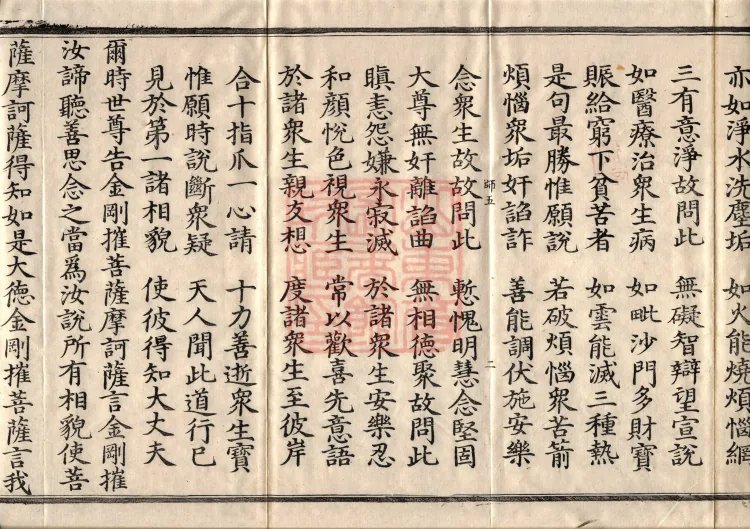 亦如淨水洗塵垢 如火能燒煩惱網
三有意淨故問此 無礙智辯望宣說
如醫療治衆生病 如毗沙門多財寶
賑給窮下貧苦者 如雲能滅三種熱
是句最勝惟願說 若破煩惱衆苦箭
煩惱衆垢奸諂詐 善能調伏施安樂
師五 二
念衆生故故問此 慙愧明慧念堅固
大尊無奸離諂曲 無相德聚故問此
瞋恚怨嫌永寂滅 於諸衆生安樂忍
和顏悅色視衆生 常以歡喜先意語
於諸衆生親友想 度諸衆生至彼岸
合十指爪一心請 十力善逝衆生寶
惟願時說斷衆疑 天人聞此道行已
見於第一諸相貌 使彼得知大丈夫
爾時世尊告金剛摧菩薩摩訶薩言金剛摧
汝諦聽善思念之當爲汝說所有相貌使菩
薩摩訶薩得知如是大德金剛摧菩薩言我